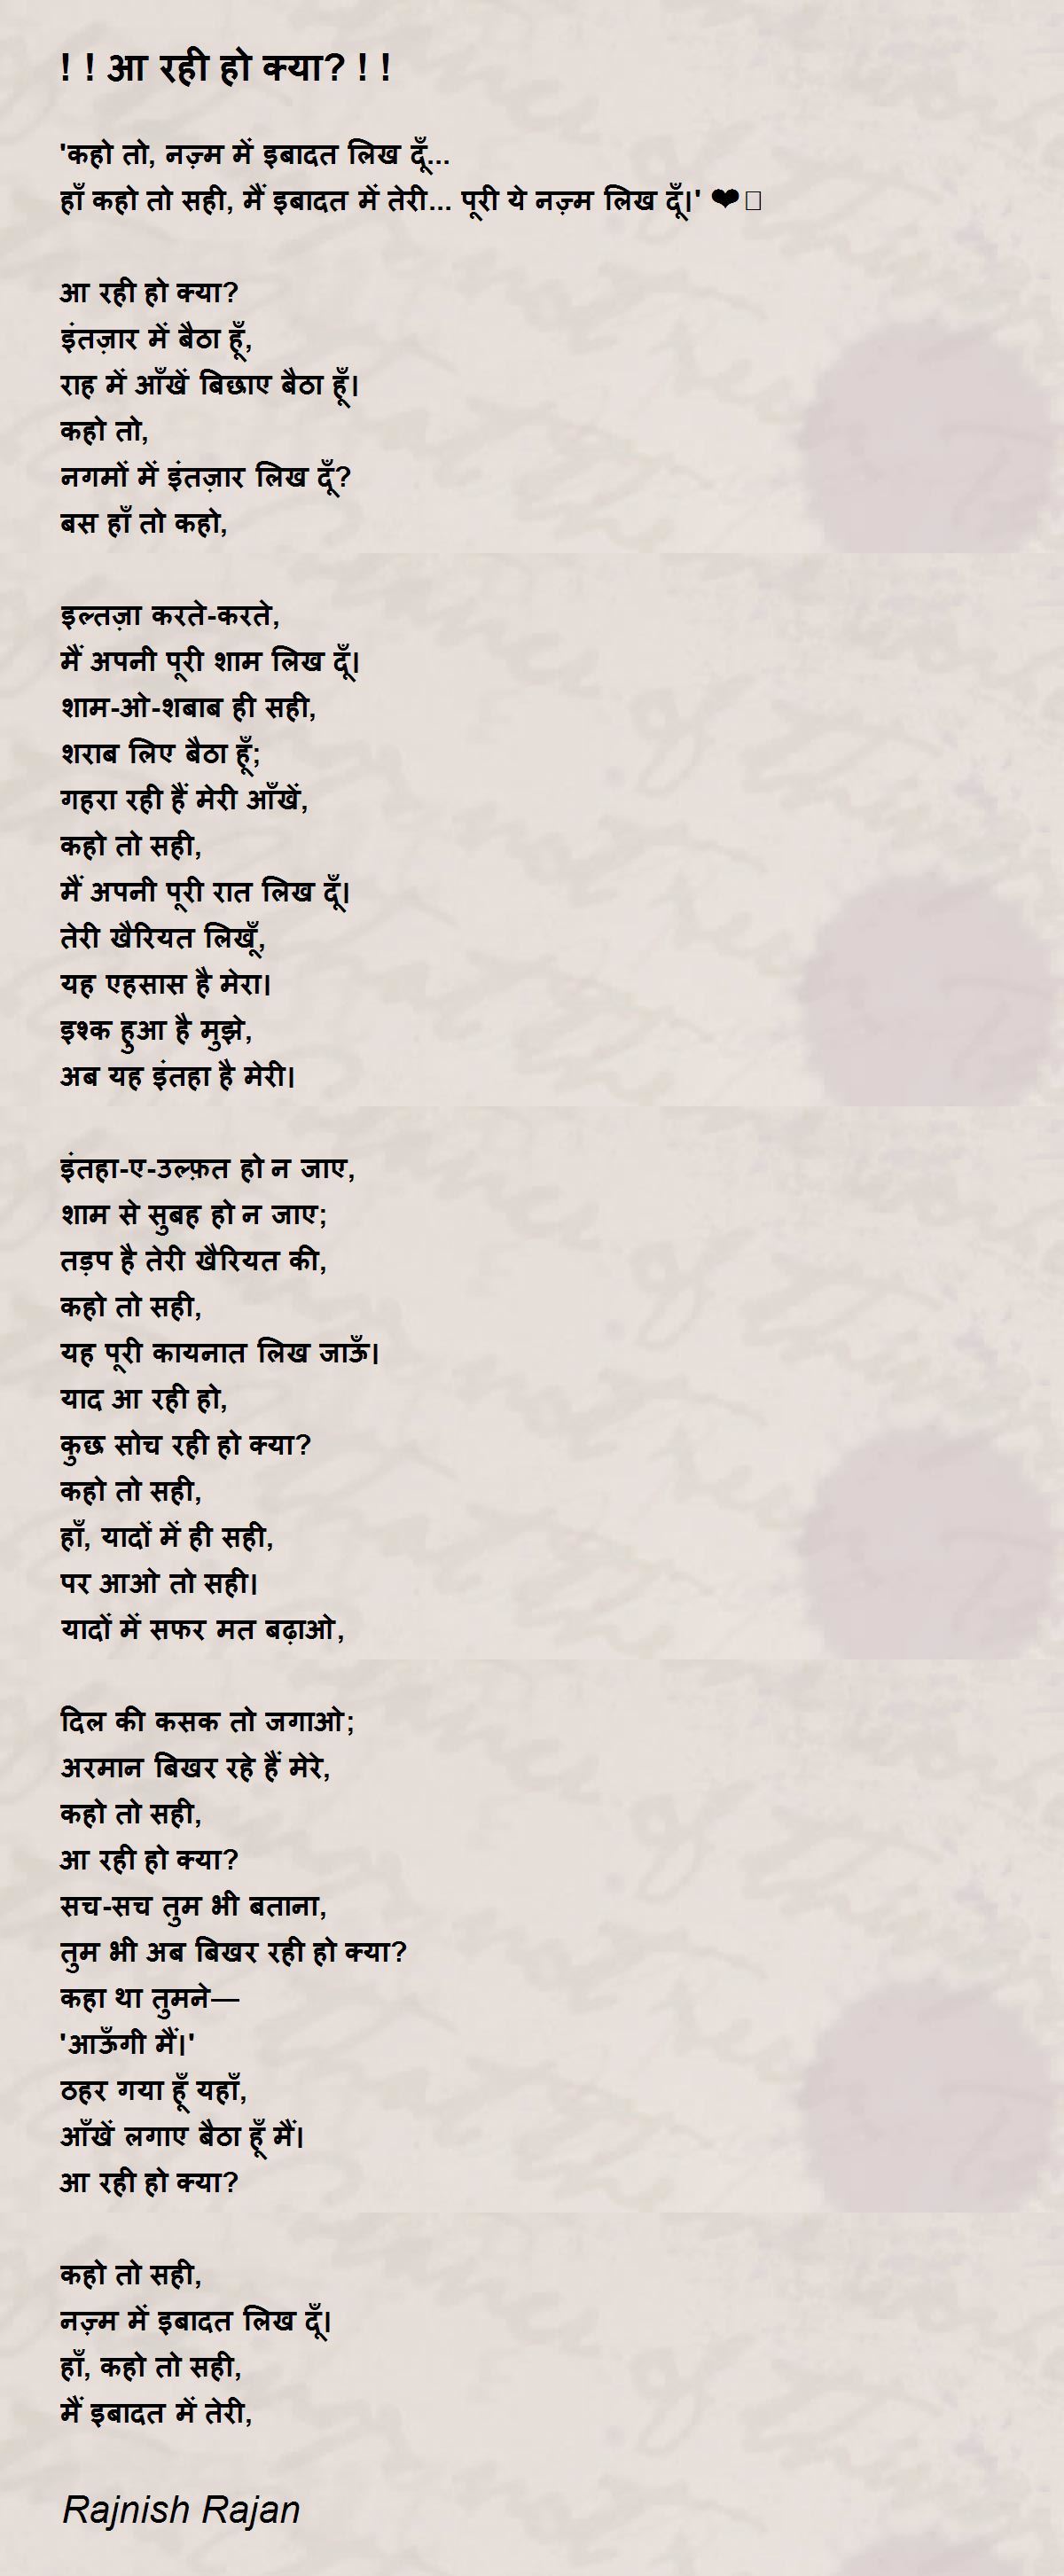 ! ! आ रही हो क्या? ! !
'कहो तो, नज़्म में इबादत लिख दूँ...
हाँ कहो तो सही, मैं इबादत में तेरी... पूरी ये नज़्म लिख दूँ।' ❤
आ रही हो क्या?
इंतज़ार में बैठा हूँ,
राह में आँखें बिछाए बैठा हूँ।
कहो तो,
नगमों में इंतज़ार लिख दूँ?
बस हाँ तो कहो,
इल्तज़ा करते-करते,
मैं अपनी पूरी शाम लिख दूँ।
शाम-ओ-शबाब ही सही,
शराब लिए बैठा हूँ;
गहरा रही हैं मेरी आँखें,
कहो तो सही,
मैं अपनी पूरी रात लिख दूँ।
तेरी खैरियत लिखूँ,
यह एहसास है मेरा।
इश्क हुआ है मुझे,
अब यह इंतहा है मेरी।
इंतहा-ए-उल्फ़त हो न जाए,
शाम से सुबह हो न जाए;
तड़प है तेरी खैरियत की,
कहो तो सही,
यह पूरी कायनात लिख जाऊँ।
याद आ रही हो,
कुछ सोच रही हो क्या?
कहो तो सही,
हाँ, यादों में ही सही,
पर आओ तो सही।
यादों में सफर मत बढ़ाओ,
दिल की कसक तो जगाओ;
अरमान बिखर रहे हैं मेरे,
कहो तो सही,
आ रही हो क्या?
सच-सच तुम भी बताना,
तुम भी अब बिखर रही हो क्या?
कहा था तुमने—
'आऊँगी मैं।'
ठहर गया हूँ यहाँ,
आँखें लगाए बैठा हूँ मैं।
आ रही हो क्या?
कहो तो सही,
नज़्म में इबादत लिख दूँ।
हाँ, कहो तो सही,
मैं इबादत में तेरी,
Rajnish Rajan